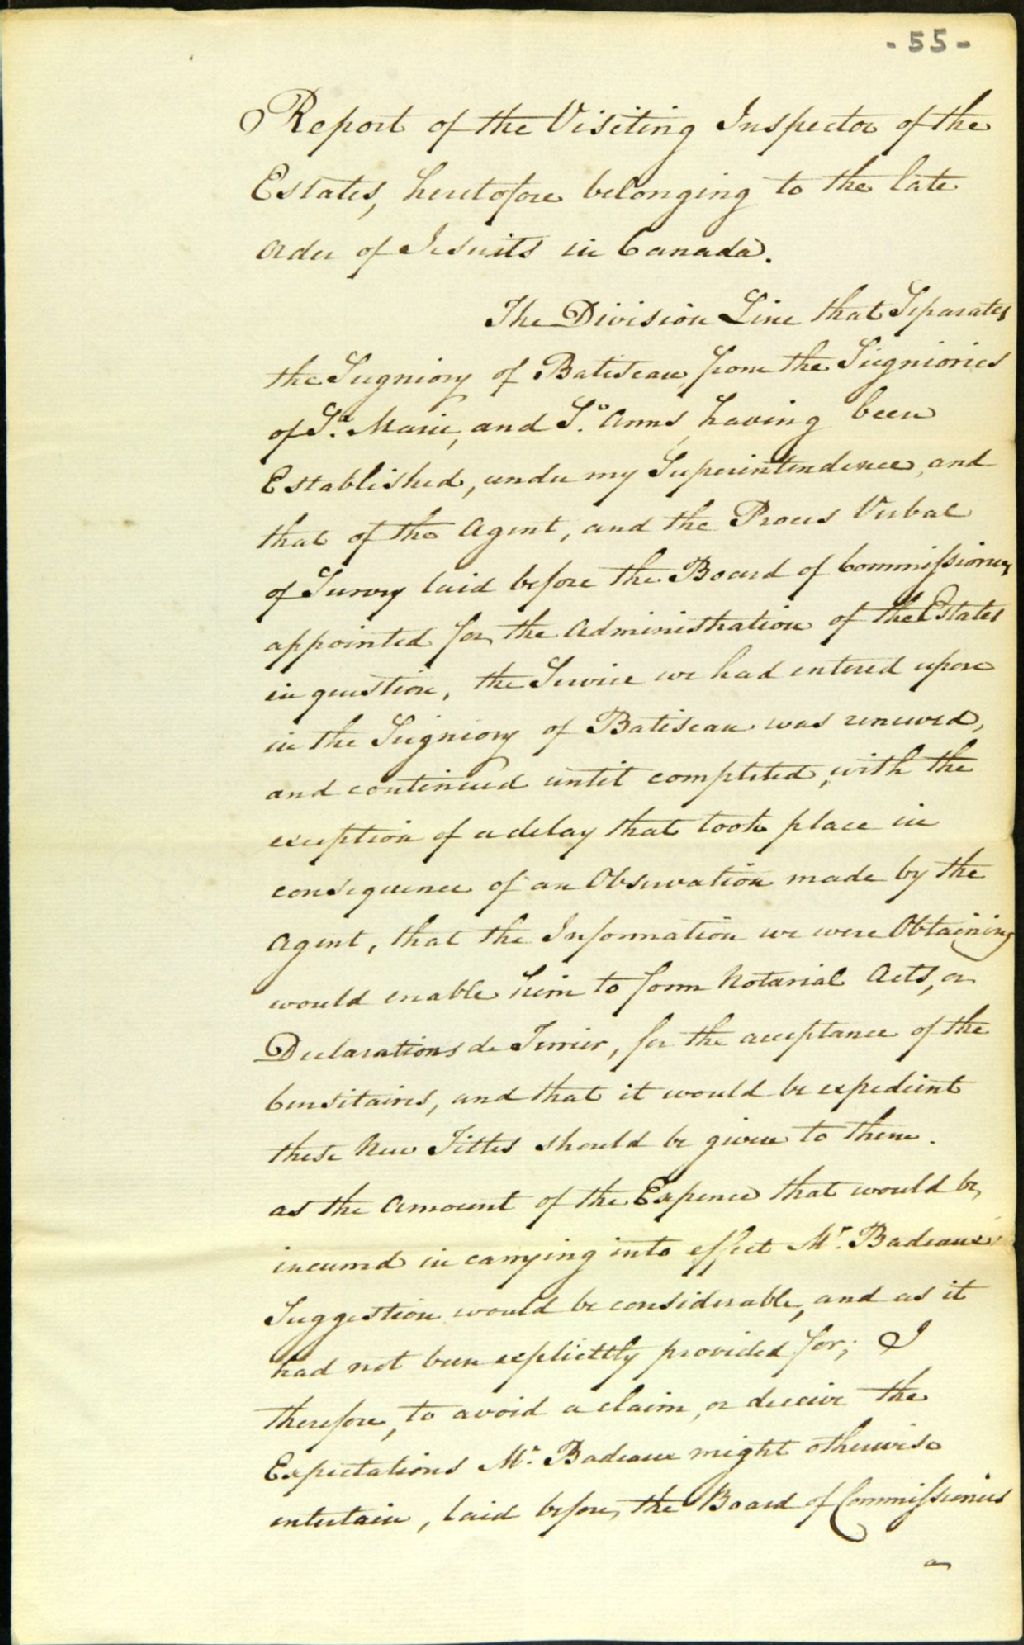 - 55 -
Report of the Visiting Inspector of the
Estates, heretofore belonging to the late
Order of Jesuits in Canada.
The Division Line that Separates
the Seigniory of Batiscan, from the Seigniories
of St. Marie, and St. Anns, having been
Established, under my Superintendence, and
that of the Agent, and the Proces Verbal
of Survey laid before the Board of Commissioners
appointed for the Administration of the Estates
in question, the Service we had entered upon
in the Seigniory of Batiscan was renewed,
and continued until completed, with the
exception of a delay that took place in
consequence of an Observation made by the
Agent, that the Information we were Obtaining
would enable him to form Notarial Acts, or
Declarations de Terrier, for the acceptance of the
Censitaires, and that it would be expedient
these New Titles should be given to them.
as the Amount of the Expence that would be,
incurred in carrying into effect Mr. Badeaux's
Suggestion would be considerable, and as it
had not been explicitly provided for; I
therefore, to avoid a claim, or deceive the
Expectations Mr. Badeaux might otherwise
entertain, laid before, the Board of Commissioners
a